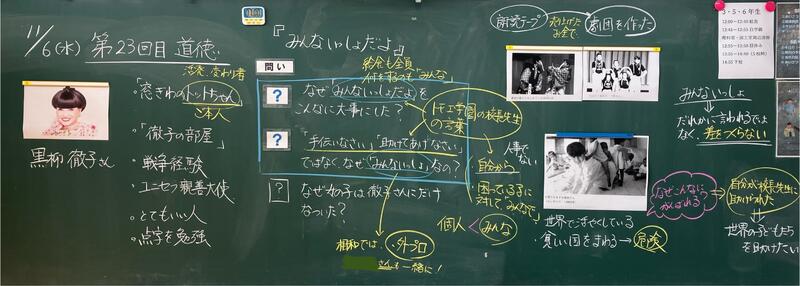 11/6(水) 第23回目 道徳
「窓ぎわのトットちゃん」
ご本人
・「徹子の部屋」
・戦争経験
・ユニセフ親善大使
・とてもいい人
・点字を勉強
黒柳 徹子さん
『みんないっしょだよ』
問い
給食も全員
何をするのも「みんな」
? なぜ「みんないっしょだよ」を
こんなに大事にした?
? 「手伝いなさい」「助けてあげなさい」
ではなく、なぜ「みんないっしょ」なの?
? なぜ
は徹子さんにだけ
なついた?
トモエ学園の校長先生
の言葉
人事で
ない
・自分から
・困ってる子に
対して、みんなで
個人 < みんな
朗読テープ
お金で、
劇団を作った
・世界で活やくしている
・貧しい国をまわる → 危険
なぜこんなに
がんばれる
自分が校長先生に
助けられた
世界の子どもたち
を助けたい
みんないっしょ
だれかに言われるでは
なく、差をつくらない
3・5・6年生